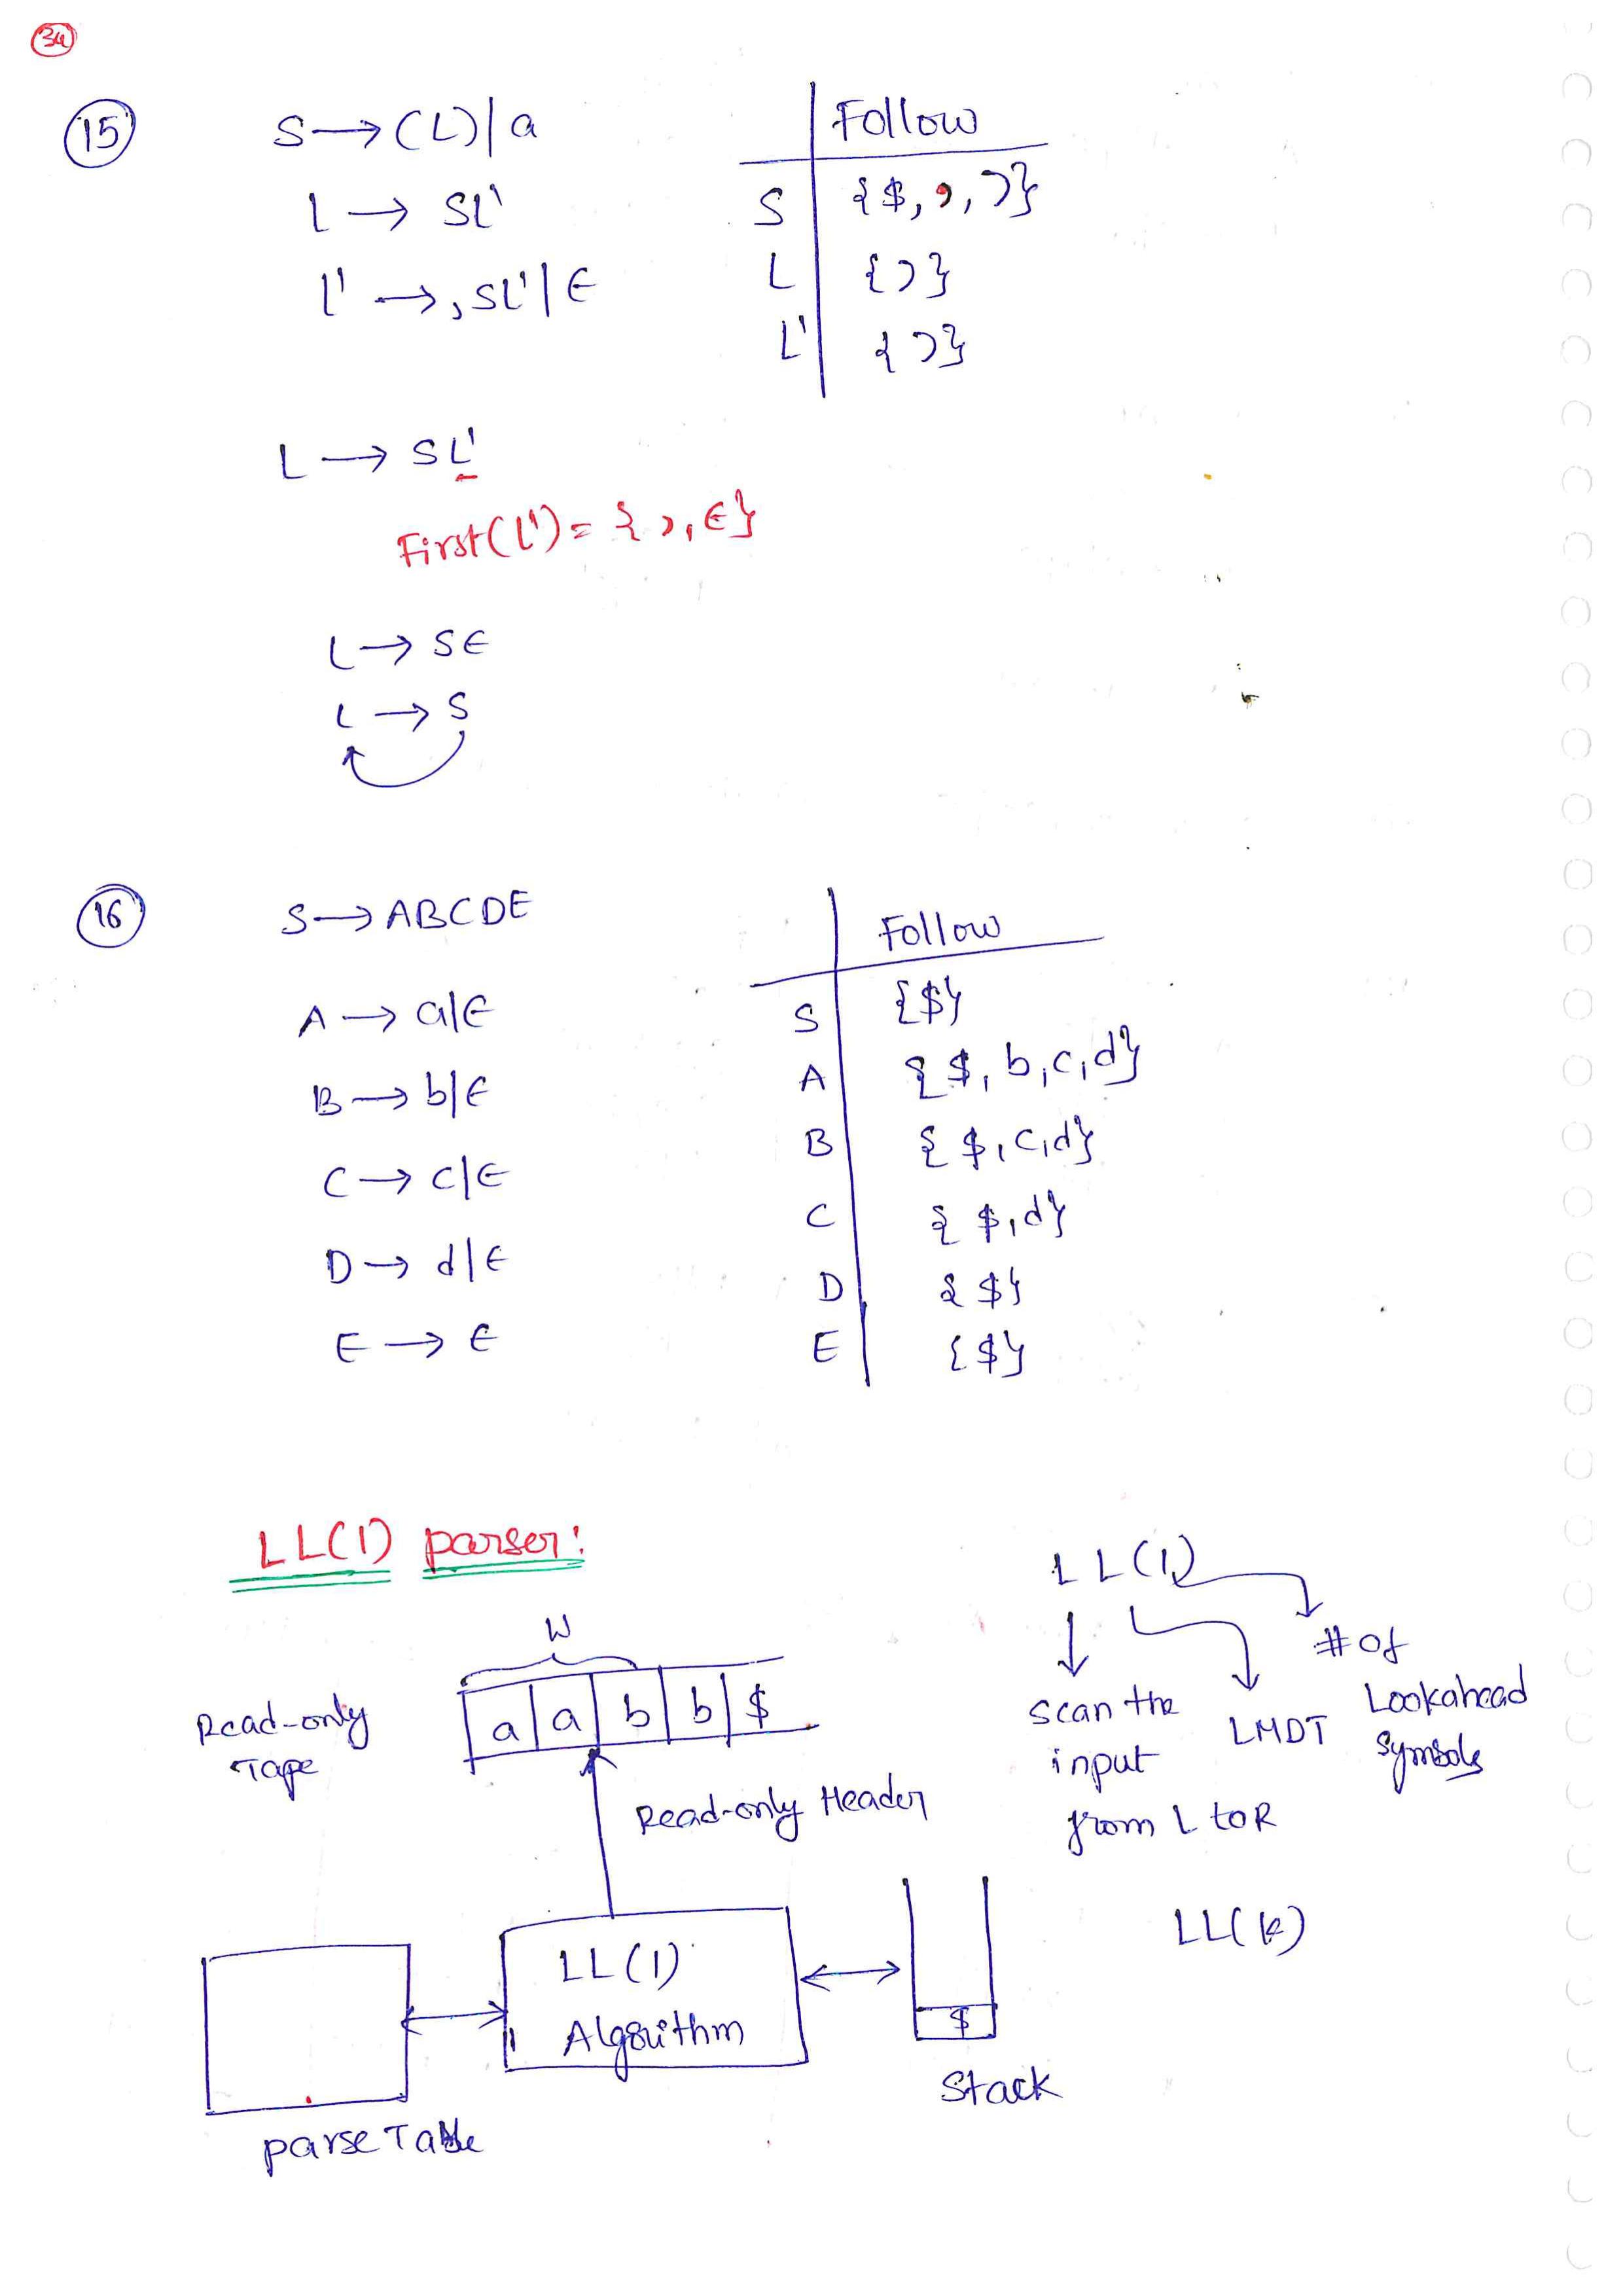 34
15
S → (L) | a
L → SL'
L' → ,SL' | ϵ
Follow
S {$, ,, )}
L { ) }
L' { ) }
L → SL'
First(L') = { ,, ϵ}
L → Sϵ
L → S
16
S → ABCDE
A → a|ϵ
B → b|ϵ
C → c|ϵ
D → d|ϵ
E → ϵ
Follow
S {$}
A {$, b, c, d}
B {$, c, d}
C {$, d}
D {$}
E {$}
LL(1) parser:
W
Read-only
Tape
a a b b $
Read-only Header
LL(1)
Algorithm
Parse Table
$
Stack
LL(1)
Scan the
input
from L to R
LMDT
# of
Lookahead
Symbols
LL(k)